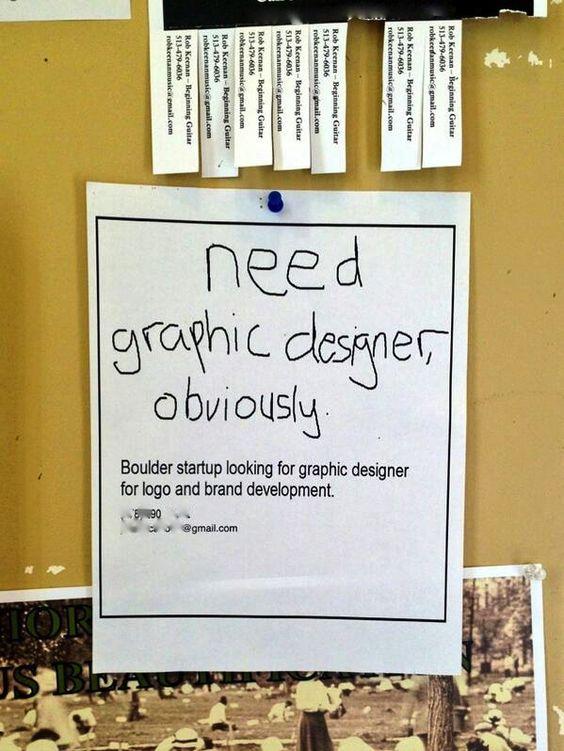 Rob Keenan – Beginning Guitar
513-479-6036
robkeenanmusic@gmail.com
Rob Keenan – Beginning Guitar
513-479-6036
robkeenanmusic@gmail.com
Rob Keenan – Beginning Guitar
513-479-6036
robkeenanmusic@gmail.com
Rob Keenan – Beginning Guitar
513-479-6036
robkeenanmusic@gmail.com
Rob Keenan – Beginning Guitar
513-479-6036
robkeenanmusic@gmail.com
Rob Keenan – Beginning Guitar
513-479-6036
robkeenanmusic@gmail.com
Rob Keenan – Beginning Guitar
513-479-6036
robkeenanmusic@gmail.com
need
graphic designer,
obviously.
Boulder startup looking for graphic designer
for logo and brand development.
@gmail.com